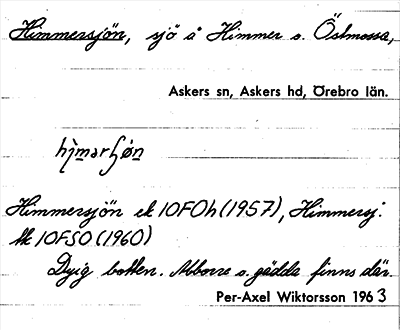 Himmersjön, sjö å Himmer s. Östmossa,
Askers sn, Askers hd, Örebro län.
Himmersjön ek 10FOh (1957), Himmersj.
tk 10F SO (1960)
Dyig botten. Abborre o. gädda finns där.
Per-Axel Wiktorsson 1963